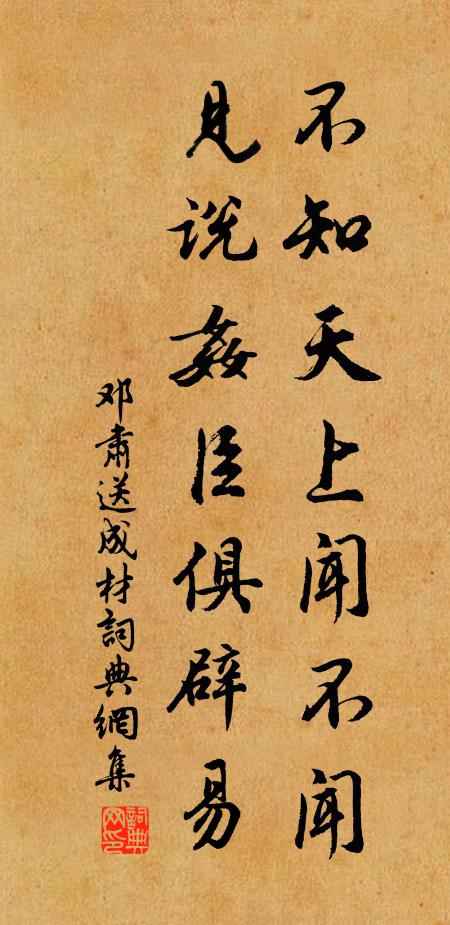 不知天上闻不闻
见说姦臣俱辟易
邓肃送成材詞典網集
詞典网印